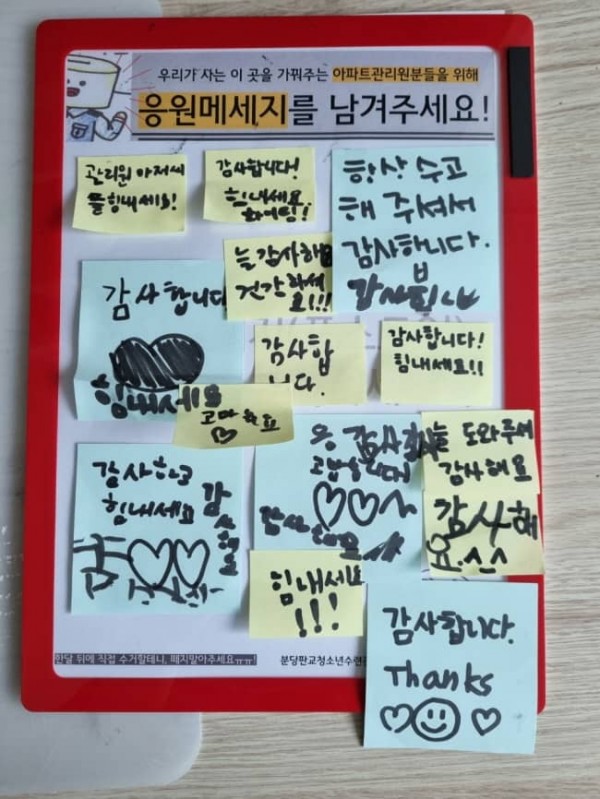 우리가 사는 이 곳을 가꿔주는 아파트관리원분들을 위해
응원메세지를 남겨주세요!
관리원 아저씨
들 힘내세요!
감사합니다!
힘내세요.
화이팅!
항상 수고
해 주셔서
감사합니다.
감사합니다
늘 감사해요
건강하세
요!!!
감사합니다
힘내세요
감사합
니다.
감사합니다!
힘내세요!!
고마워요
감사하고
힘내세요
감사해요
도와주셔
감사해요
감사해
요.^^
힘내세요
!!!
감사합니다.
Thanks
한달 뒤에 직접 수거할테니, 떼지말아주세요ㅠㅠ!
분당판교청소년수련관